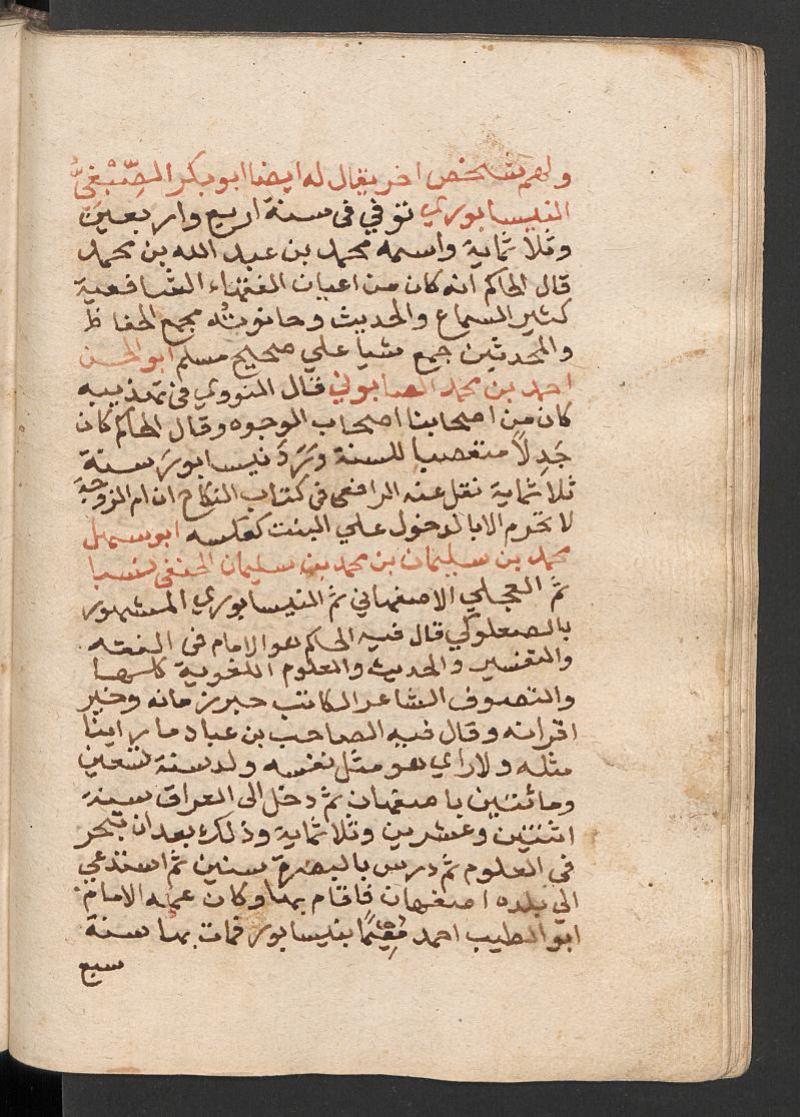 ولهم شخص اخر يقال له ايضا ابو بكر الصِّبْغِيُّ
النيسابوري توفي في سنة اربع واربعين
وثلاثماية واسمه محمد بن عبد الله بن محمد
قال الحاكم انه كان من اعيان الفقهاء الشافعية
كثير السماع والحديث وحانوته مجمع الحفاظ
والمحدثين جمع شيا علي صحيح مسلم ابو الحسن
احمد بن محمد الصابوني قال النووي في تهذيبه
كان من اصحابنا اصحاب الوجوه وقال الحاكم كان
جَدِلاً متعصبا للسنة وَرَدَ نيسابورَ سنة
ثلاثماية نقل عنه الرافعي في كتاب النكاح ان ام الزوجة
لا تحرم الا بالدخول علي البنت كعكسه ابو سهل
محمد بن سليمان بن محمد بن سليمان الحنفي نسبا
ثم العجلي الاصفهاني ثم النيسابوري المشهور
بالصعلوكي قال فيه الحاكم هو الامام في الفقه
والتفسير والحديث والعلوم اللغوية كلها
والتصوف الشاعر الكاتب حبر زمانه وخير
اقرانه وقال فيه الصاحب بن عباد ما راينا
مثله ولا راي هو مثل نفسه ولد سنة تسعين
ومائتين باصفهان ثم دخل الى العراق سنة
اثنتين وعشرين وثلاثماية وذلك بعد ان تبحر
في العلوم ثم درس بالبصرة سنين ثم استدعي
الي بلده اصفهان فاقام بها وكان عمه الامام
ابو الطيب احمد مُقِيْمًا بنيسابور فمات بها سنة
سبع